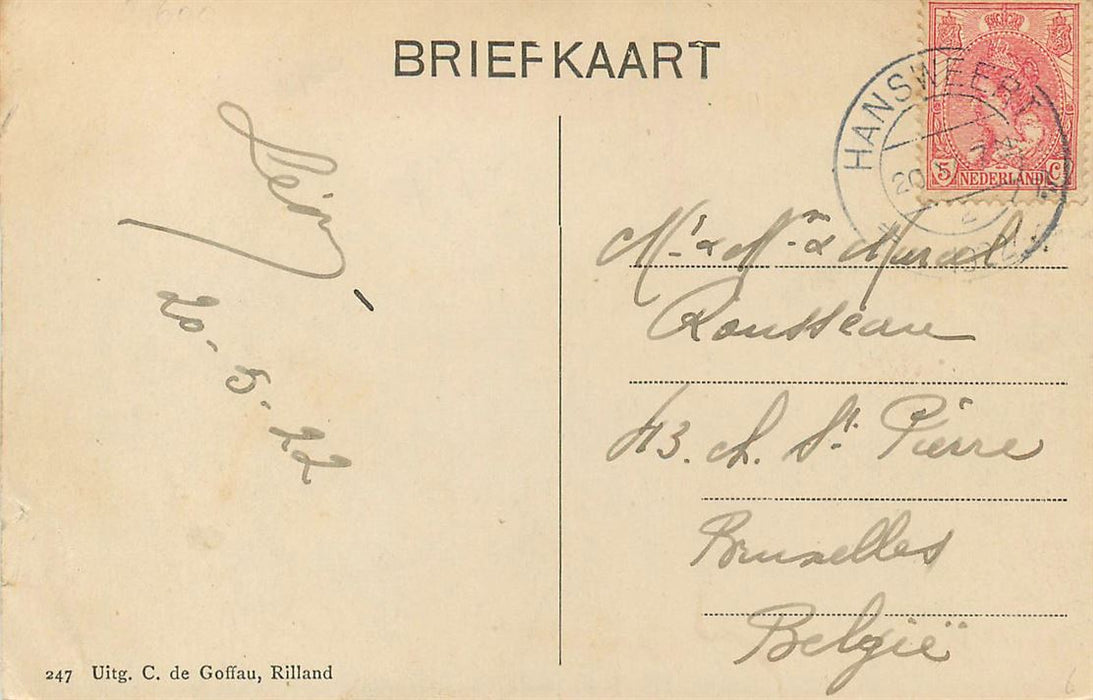 BRIEFKAART
HANSWEERT
20
1922
5 NEDERLAND C
Léon
20-5-22
Mr & Mme Marcel
Rousseau
43. ch. St. Pierre
Bruxelles
België
247 Uitg. C. de Goffau, Rilland